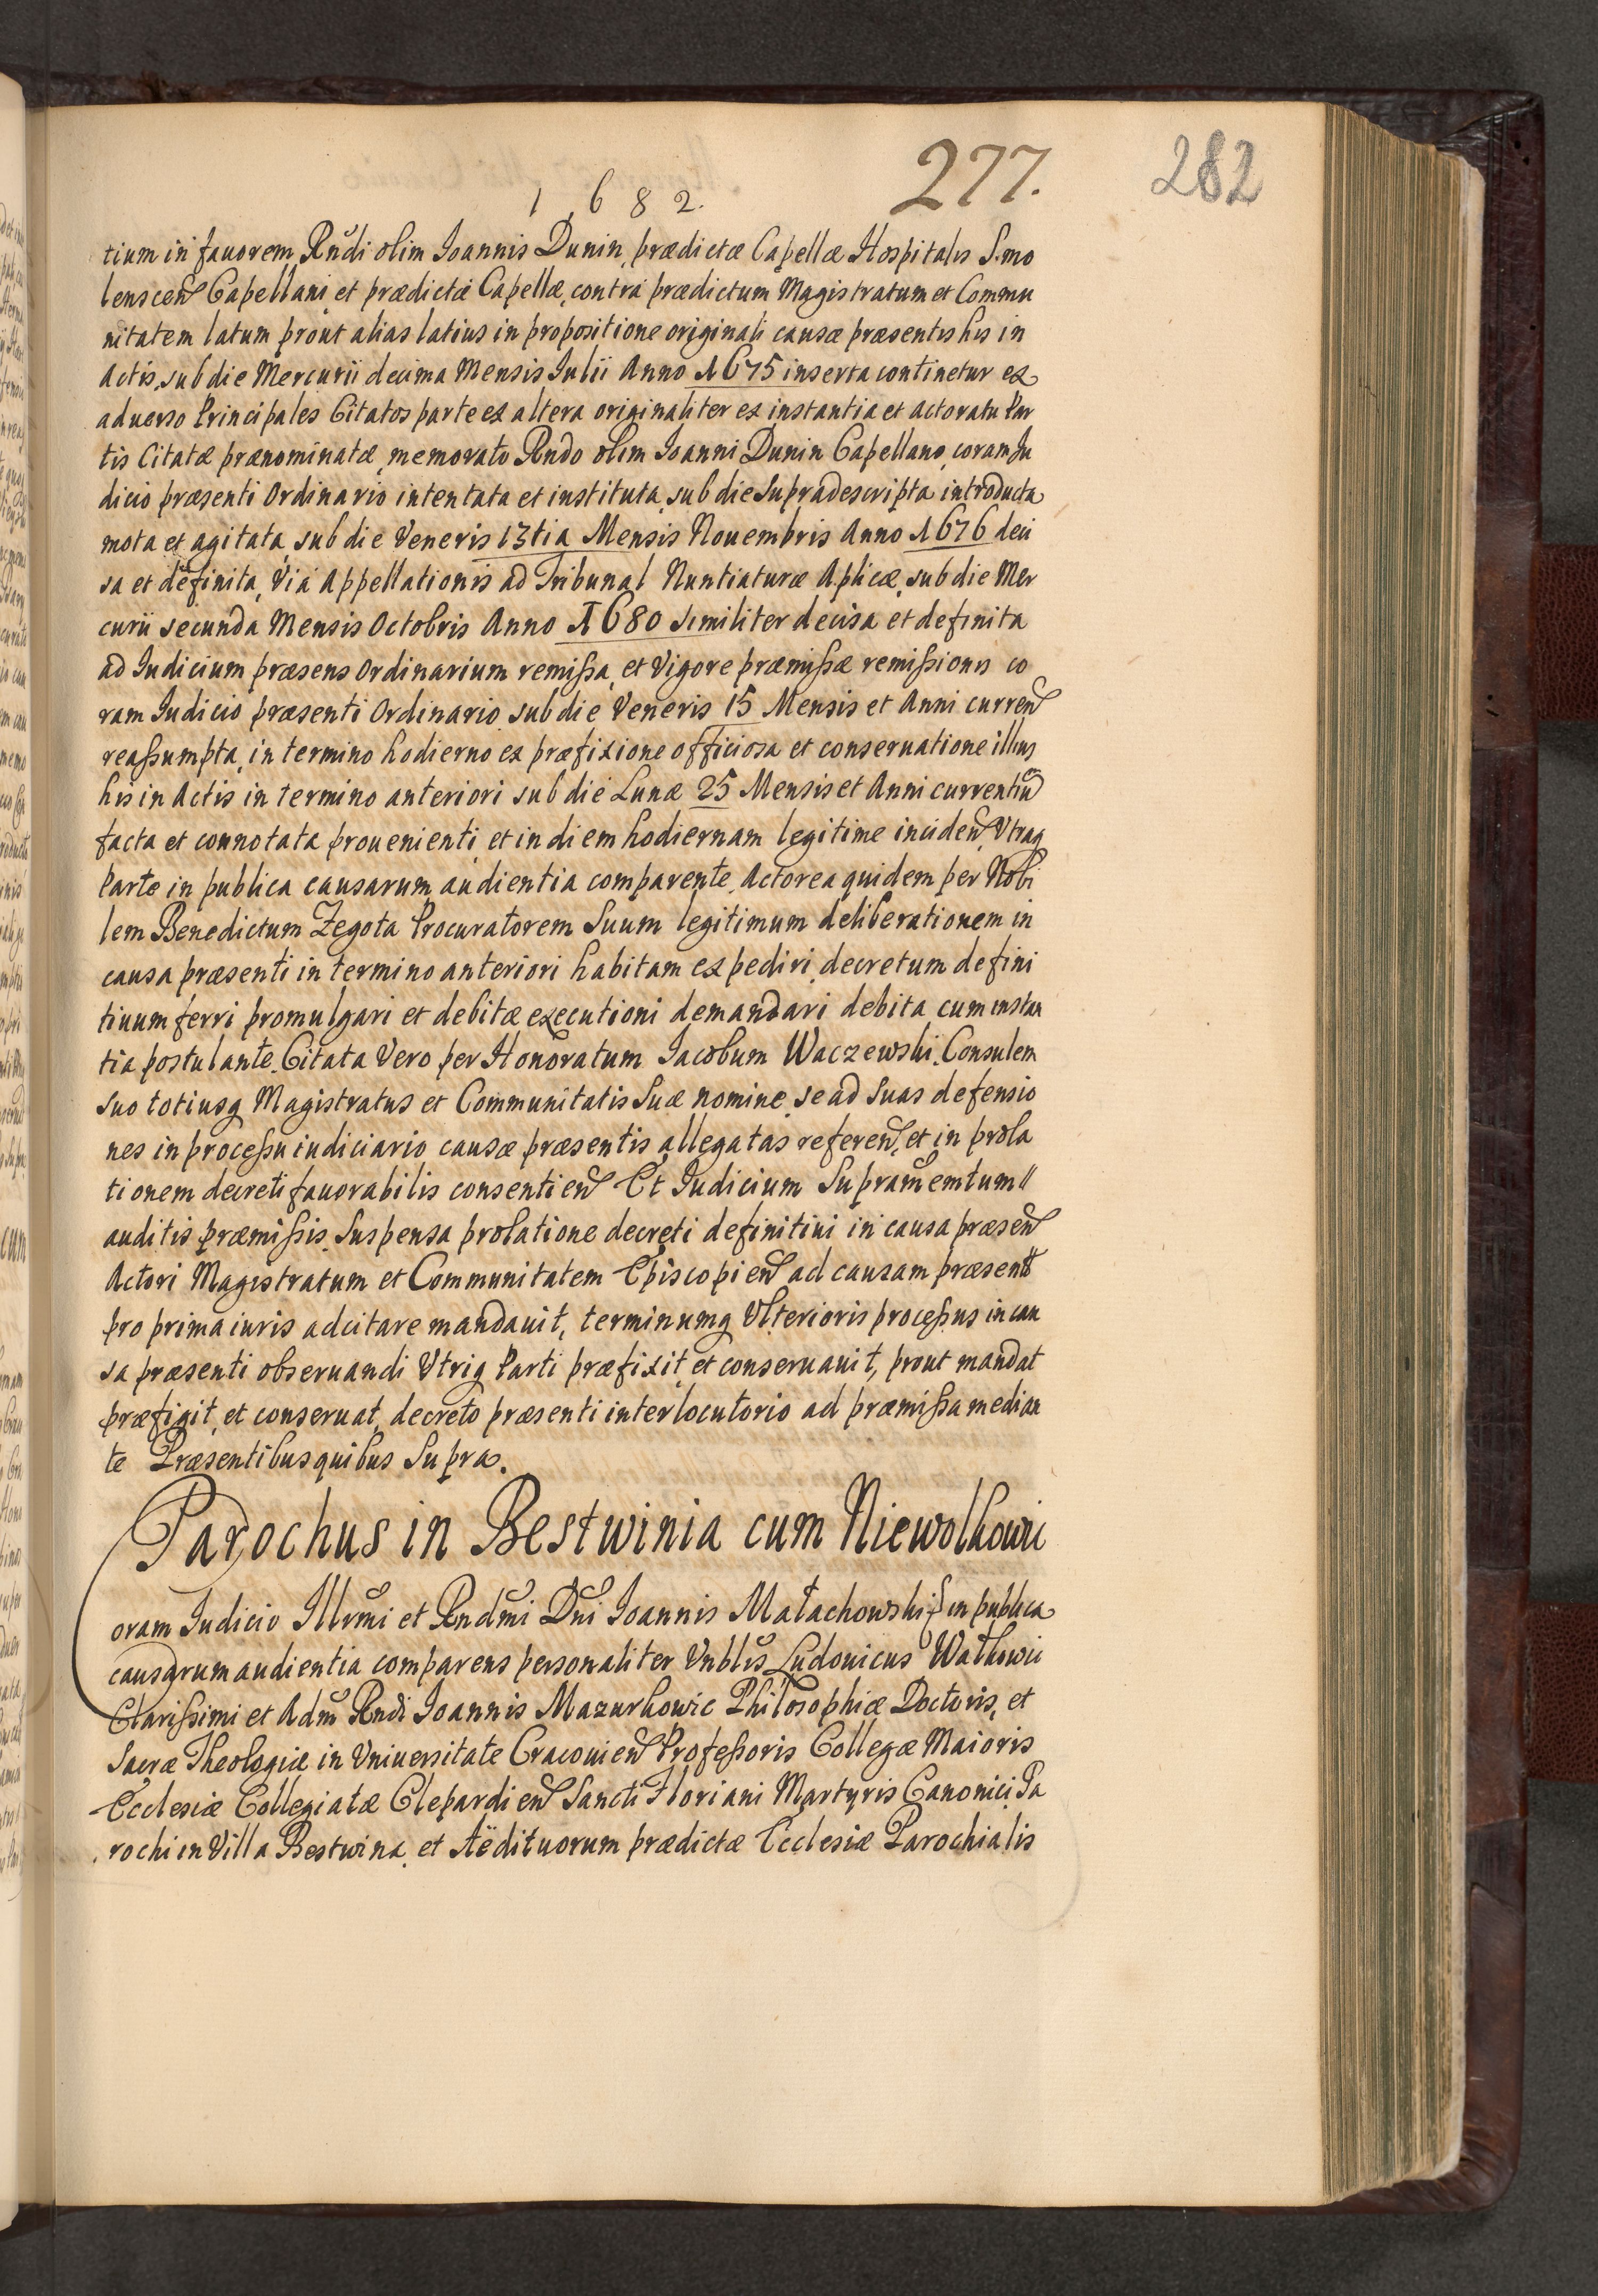 277.
282
1682.
tium in fauorem Rndi olim Ioannis Dunin, prædictæ Capellæ Hospitalis Smo
lenscen Capellani et prædictæ Capellæ, contra prædictum Magistratum et Commu
nitatem latum prout alias latius in propositione originali causæ præsentis his in
Actis, sub die Mercurii decima Mensis Iulii Anno 1675 inserta continetur ex
aduerso Principales Citatos parte ex altera originaliter ex instantia et actoratu Par
tis Citatæ prænominatæ, memorato Rndo olim Ioanni Dunin Capellano, coram Iu
dicio præsenti Ordinario intentata et instituta, sub die supradescripta introducta
mota et agitata, sub die Veneris 13tia Mensis Nouembris Anno 1676 deci
sa et definita, Via Appellationis ad Tribunal Nuntiaturæ Aplicæ, sub die Mer
curii secunda Mensis Octobris Anno 1680 similiter decisa et definita
ad Iudicium præsens Ordinarium remissa, et Vigore præmissæ remissionis co
ram Iudicio præsenti Ordinario sub die Veneris 15 Mensis et Anni curren
reassumpta, in termino hodierno ex præfixione officiosa et conseruatione illius
his in Actis in termino anteriori sub die Lunæ 25 Mensis et Anni currentium
facta et connotata prouenienti, et in diem hodiernam legitime inciden, Vtraq
Parte in publica causarum audientia comparente, Actorea quidem per Nobi
lem Benedictum Zegota Procuratorem Suum legitimum deliberationem in
causa præsenti in termino anteriori habitam expediri, decretum defini
tiuum ferri promulgari et debitæ executioni demandari debita cum instan
tia postulante. Citata Vero per Honoratum Iacobum Waczewski, Consulem
suo totiusq Magistratus et Communitatis suæ nomine, se ad suas defensio
nes in processu iudiciario causæ præsentis allegatas referen, et in prola
tionem decreti fauorabilis consentien Et Iudicium Supramemtum
auditis præmissis, Suspensa prolatione decreti definitiui in causa præsen
Actori Magistratum et Communitatem Episcopien ad causam præsent
pro prima iuris adcitare mandauit, terminumq Vlterioris processus in cau
sa præsenti obseruandi Vtriq Parti præfixit, et conseruauit, prout mandat
præfigit, et conseruat, decreto præsenti interlocutorio ad præmissa median
te Præsentibus quibus Supra.
Parochus in Bestwinia cum Niewolkowic
oram Iudicio Illrmi et Rndmi Dni Ioannis Małachowski in publica
causarum audientia comparens personaliter Vnblis Ludouicus Walkowic
Clarissimi et Adm Rndi Ioannis Mazurkowic Philosophiæ Doctoris, et
Sacræ Theologiæ in Vniuersitate Cracouien Professoris Collegæ Maioris
Ecclesiæ Collegiatæ Clepardien Sancti Floriani Martyris Canonici Pa
rochi in Villa Bestwina, et Aëdituorum prædictæ Ecclesiæ Parochialis